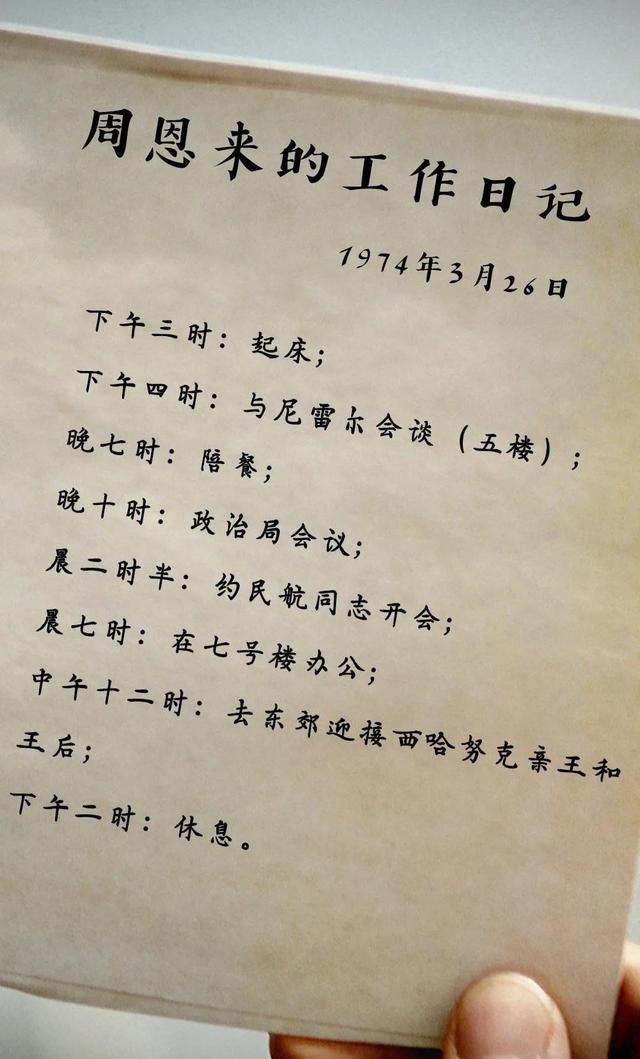 周恩来的工作日记
1974年3月26日
下午三时：起床；
下午四时：与尼雷尔会谈（五楼）；
晚七时：陪餐；
晚十时：政治局会议；
晨二时半：约民航同志开会；
晨七时：在七号楼办公；
中午十二时：去东郊迎接西哈努克亲王和
王后；
下午二时：休息。